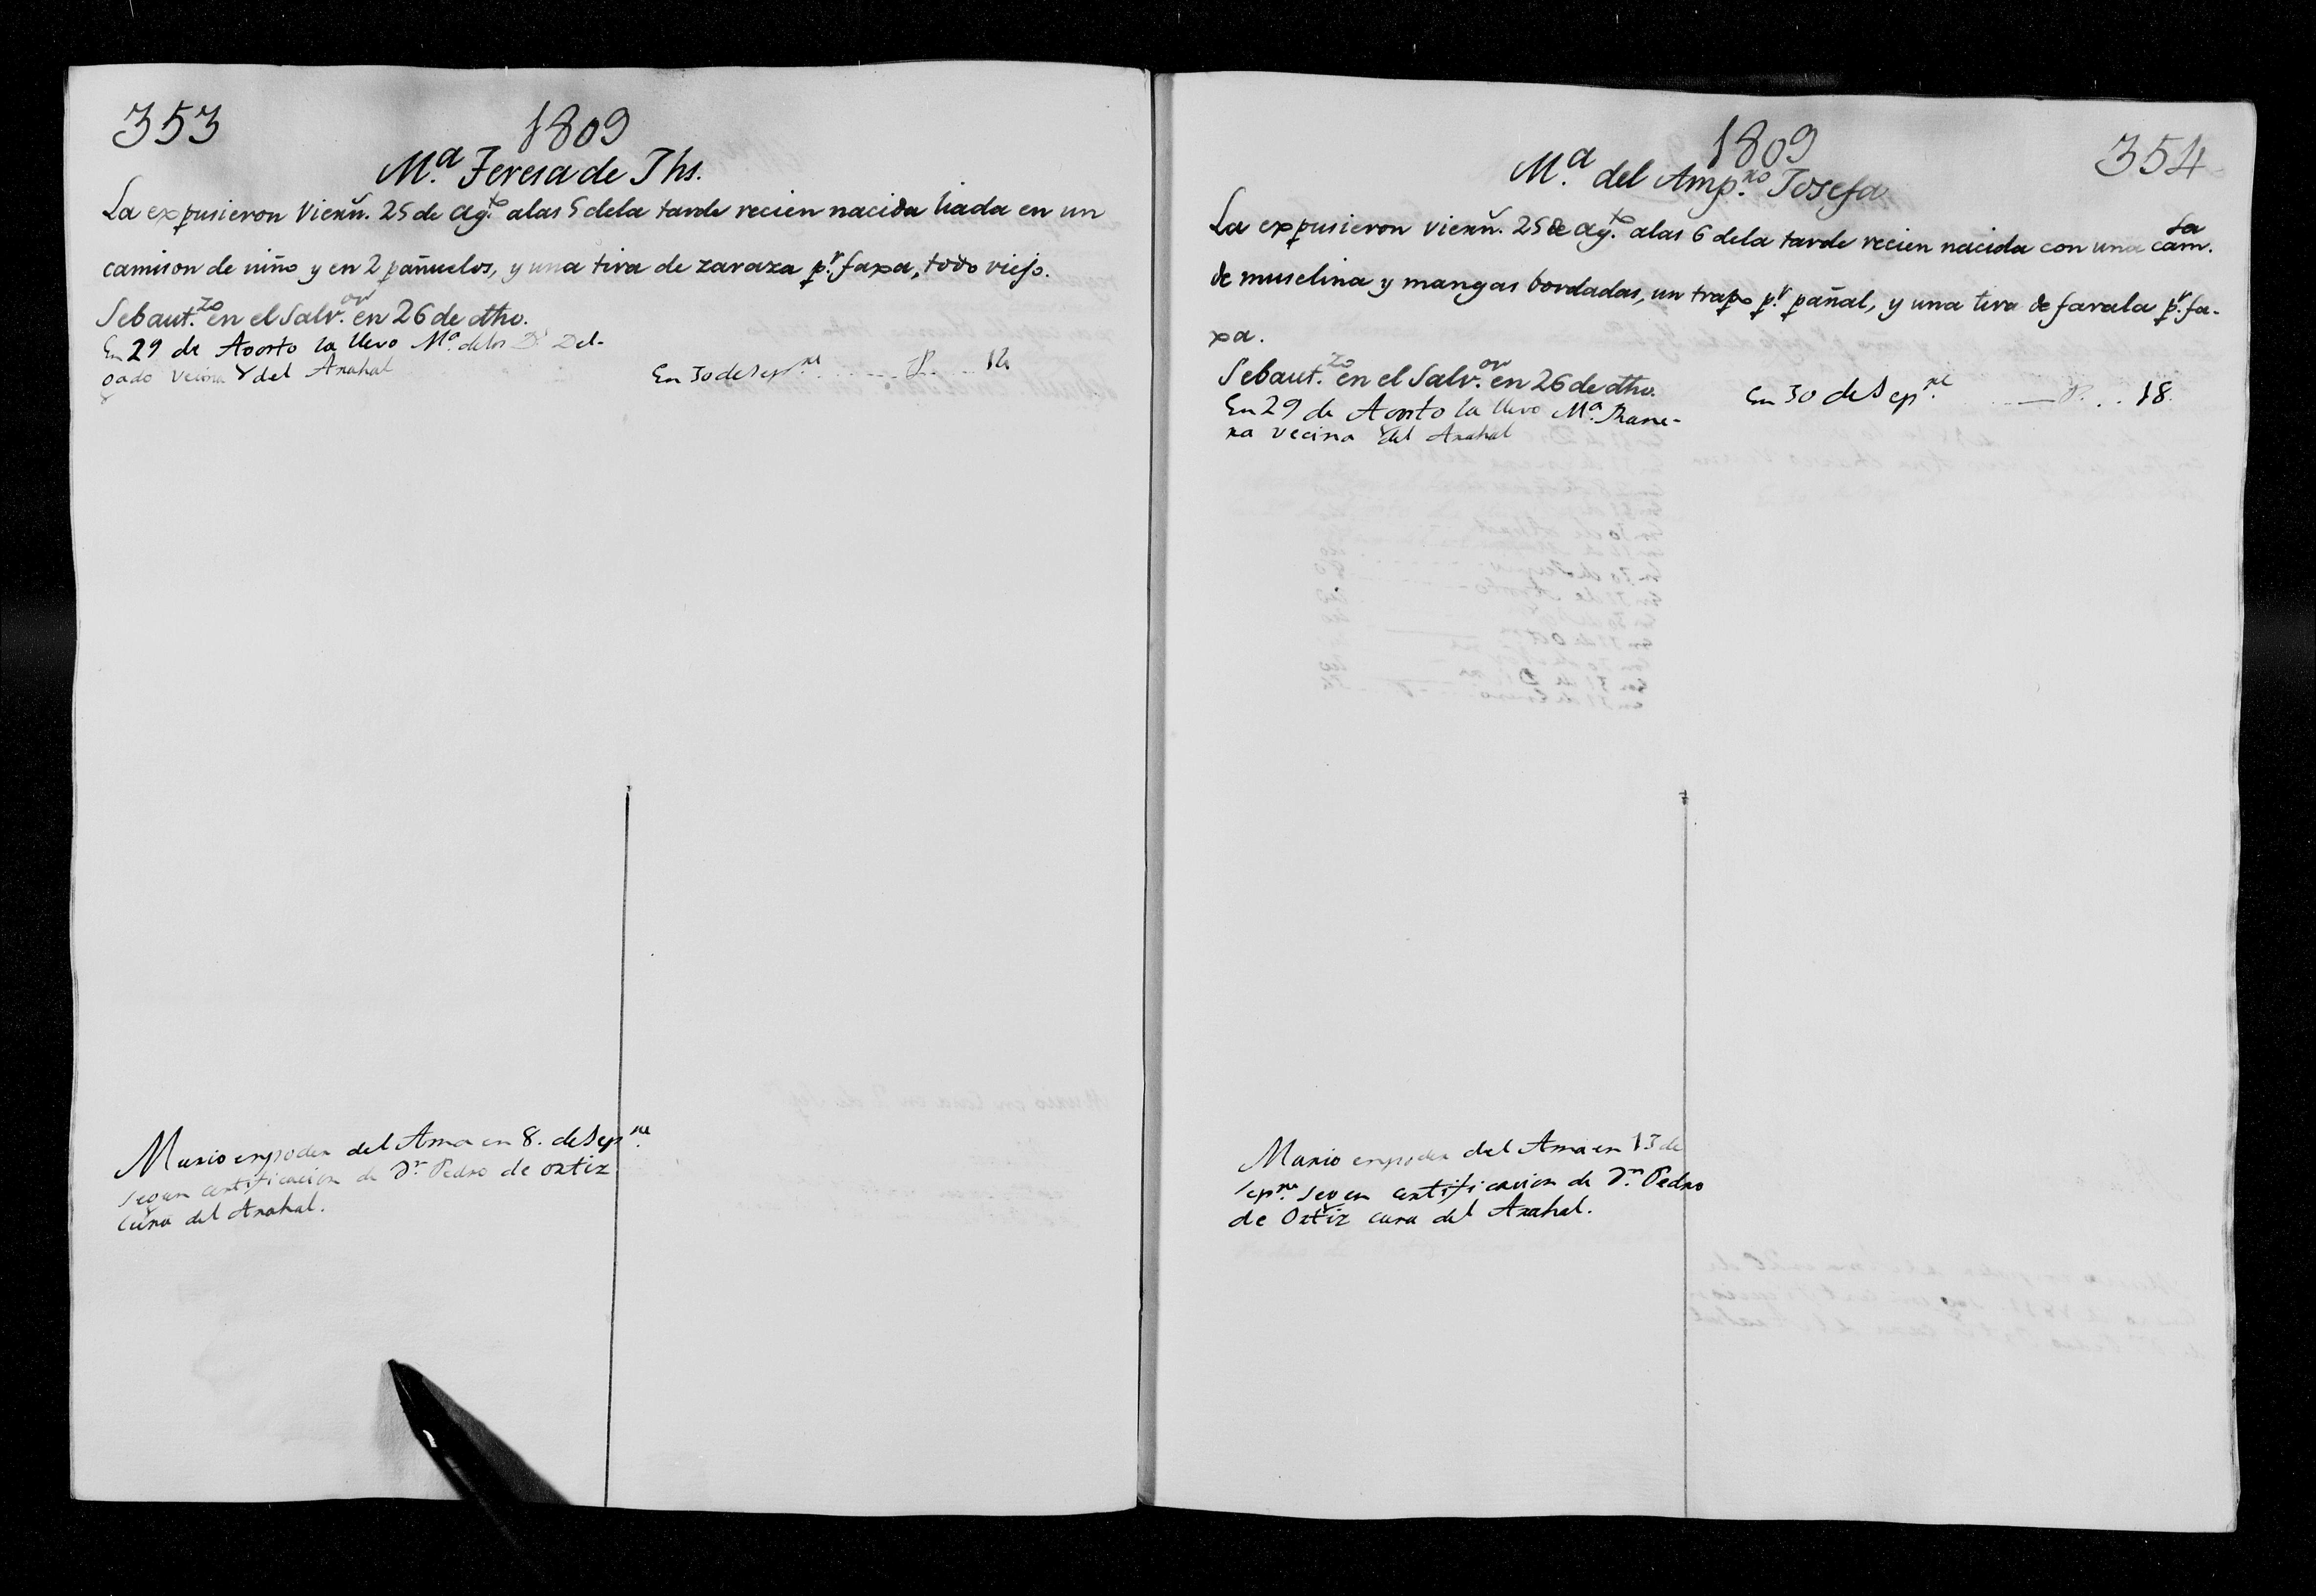 353
1809
M.ª Teresa de Jhs.
La expusieron viern̄. 25 de Ag.to a las 5 dela tarde recien nacida liada en un
camison de niño y en 2 pañuelos, y una tira de zaraza p.r faxa, todo viejo.
Se baut.zo en el Salv.or en 26 de dho.
En 29 de Agosto la llevo M.ª de los D.s Del-
gado vecina del Arahal
En 30 de Sep.re P. 12
Murio en poder del Ama en 8. de Sep.re
segun certificacion de D.n Pedro de ortiz
cura del Arahal.
1809
354
M.ª del Amp.ro Josefa
La expusieron viern̄. 25 de Ag.to a las 6 dela tarde recien nacida con una cam.sa
de muselina y mangas bordadas, un trapo p.r pañal, y una tira de farala p.r fa-
xa.
Se baut.zo en el Salv.or en 26 de dho.
En 29 de Agosto la llevo M.ª
vecina del Arahal
En 30 de Sep.re P. 18.
Murio en poder del Ama en 13 de
Sep.re segun certificacion de D.n Pedro
de Ortiz cura del Arahal.